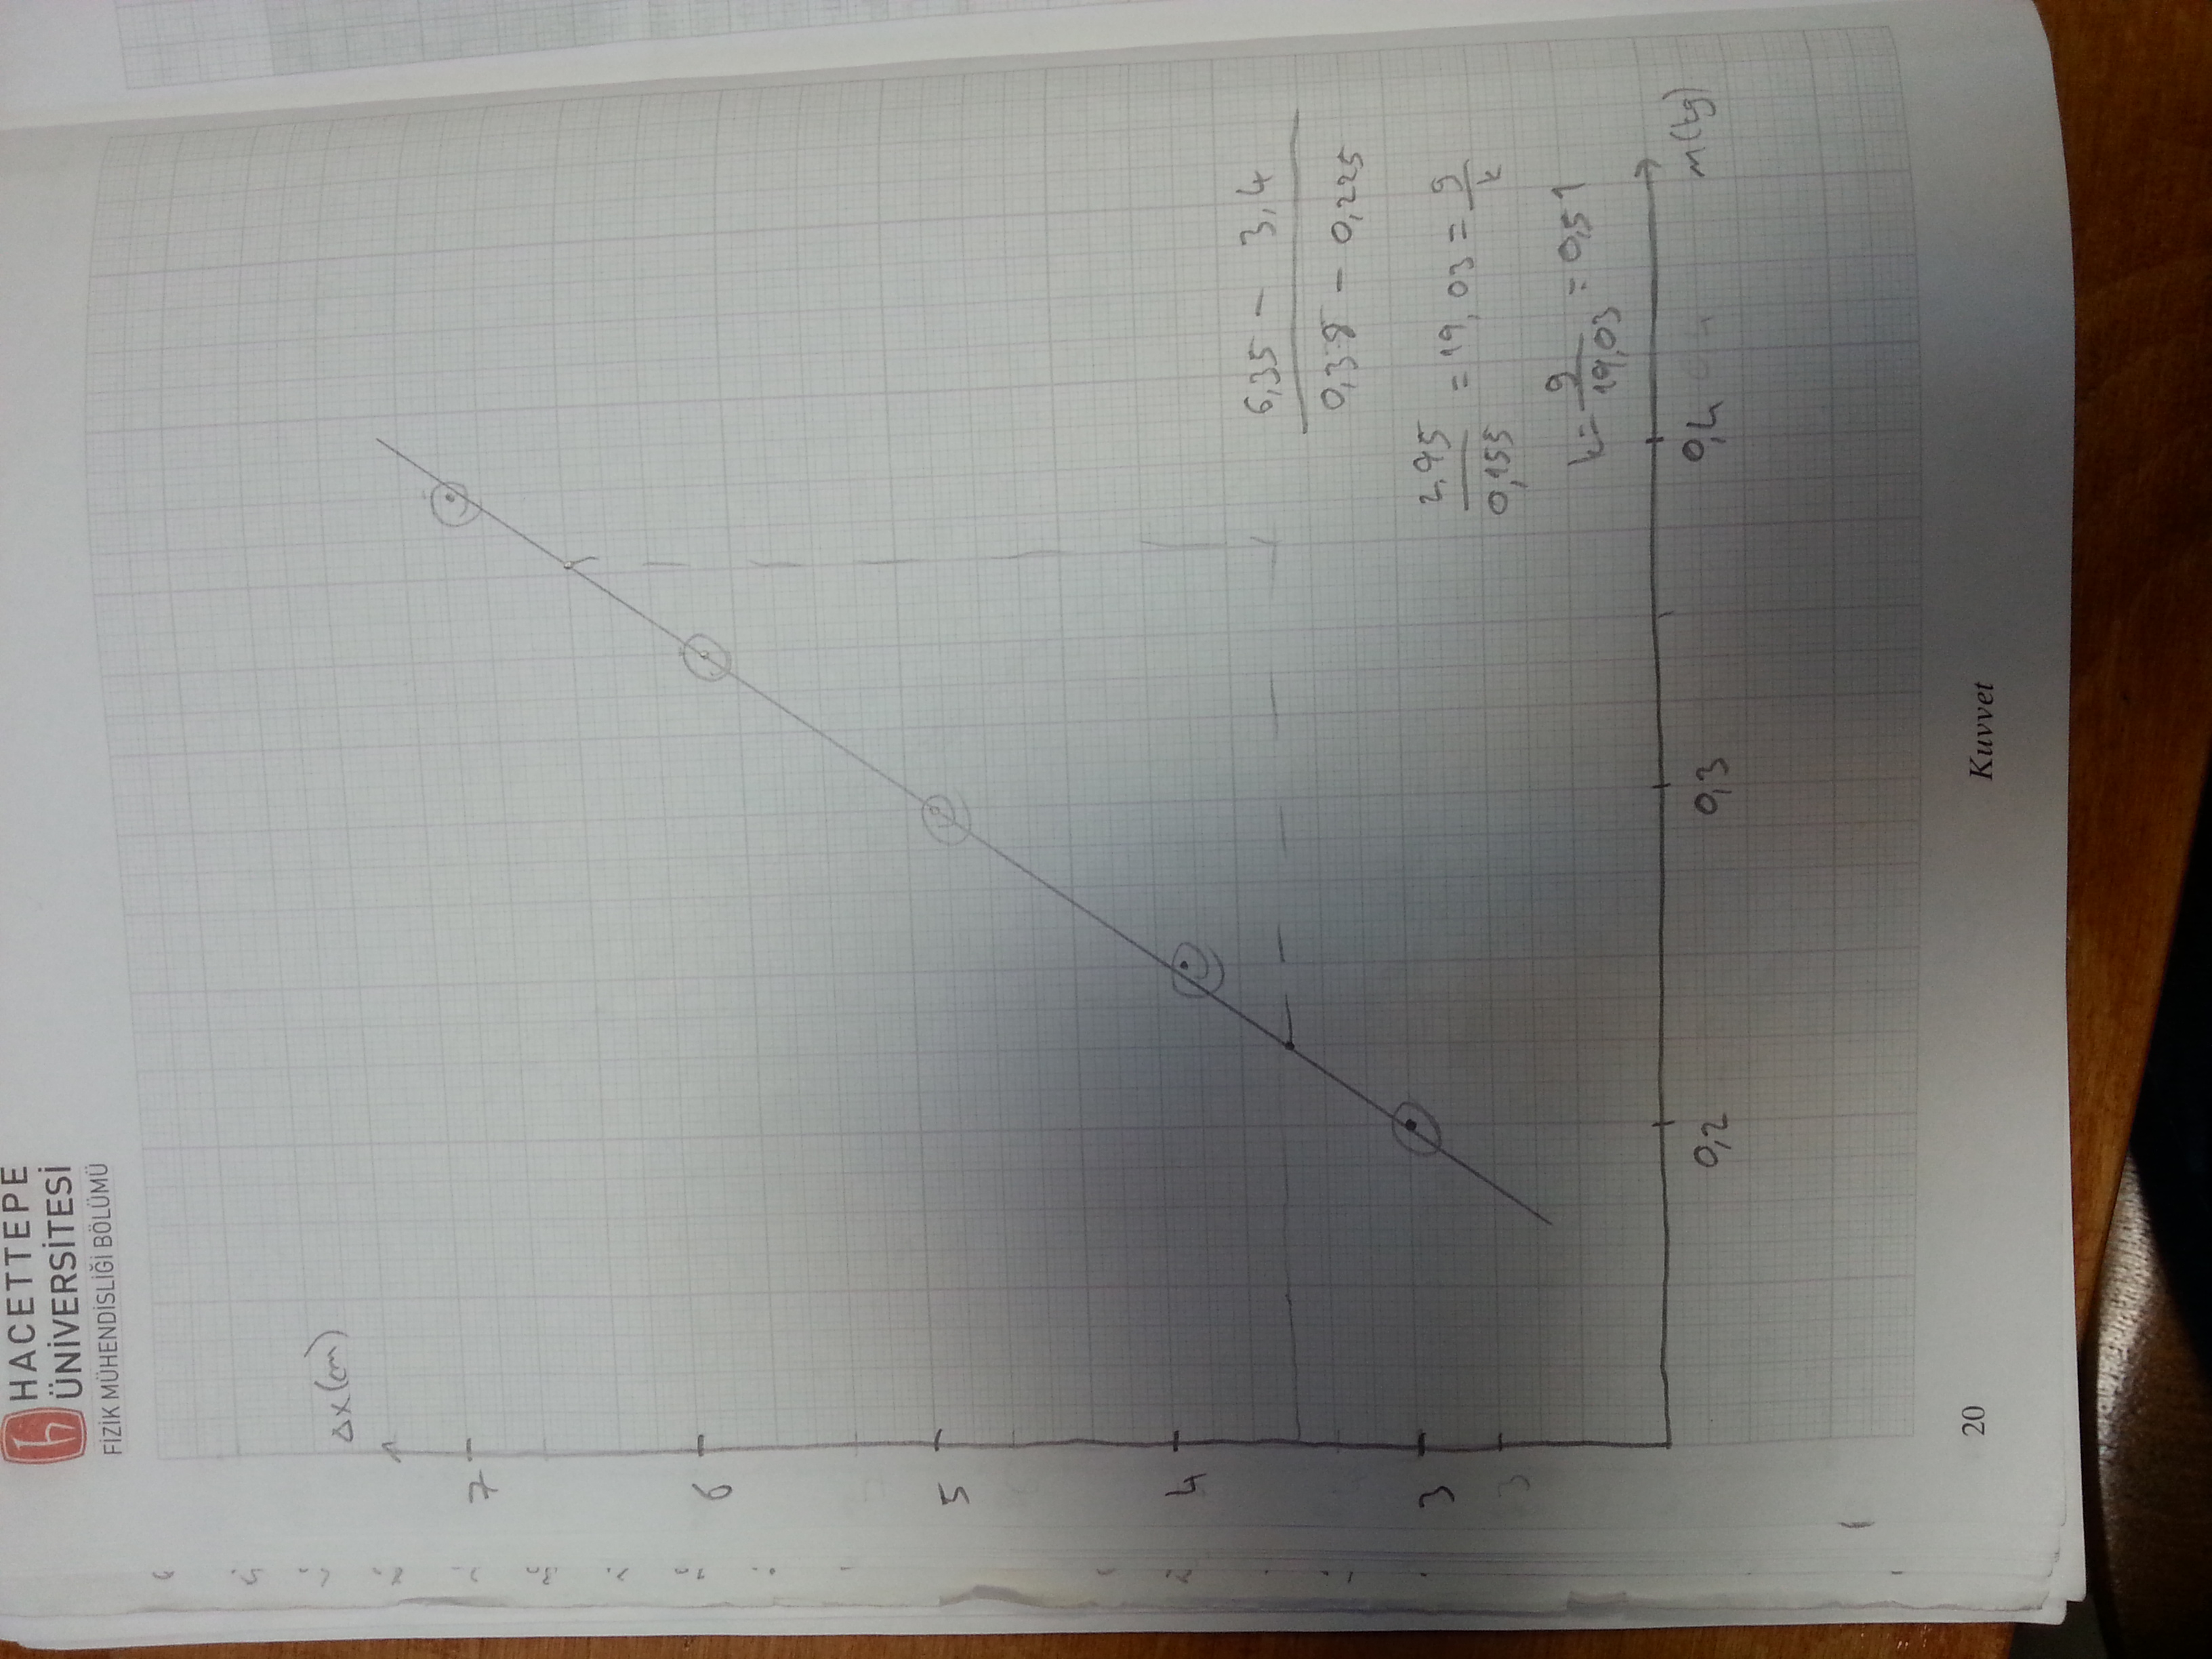 HACETTEPE
ÜNİVERSİTESİ
FİZİK MÜHENDİSLİĞİ BÖLÜMÜ
Δx(cm)
7
6
5
4
3
3
6,35 - 3,4
0,38 - 0,225
2,95
0,155
= 19,03 = g
k
k = g
19,03
= 0,51
0,2
0,3
0,4
m(kg)
20
Kuvvet